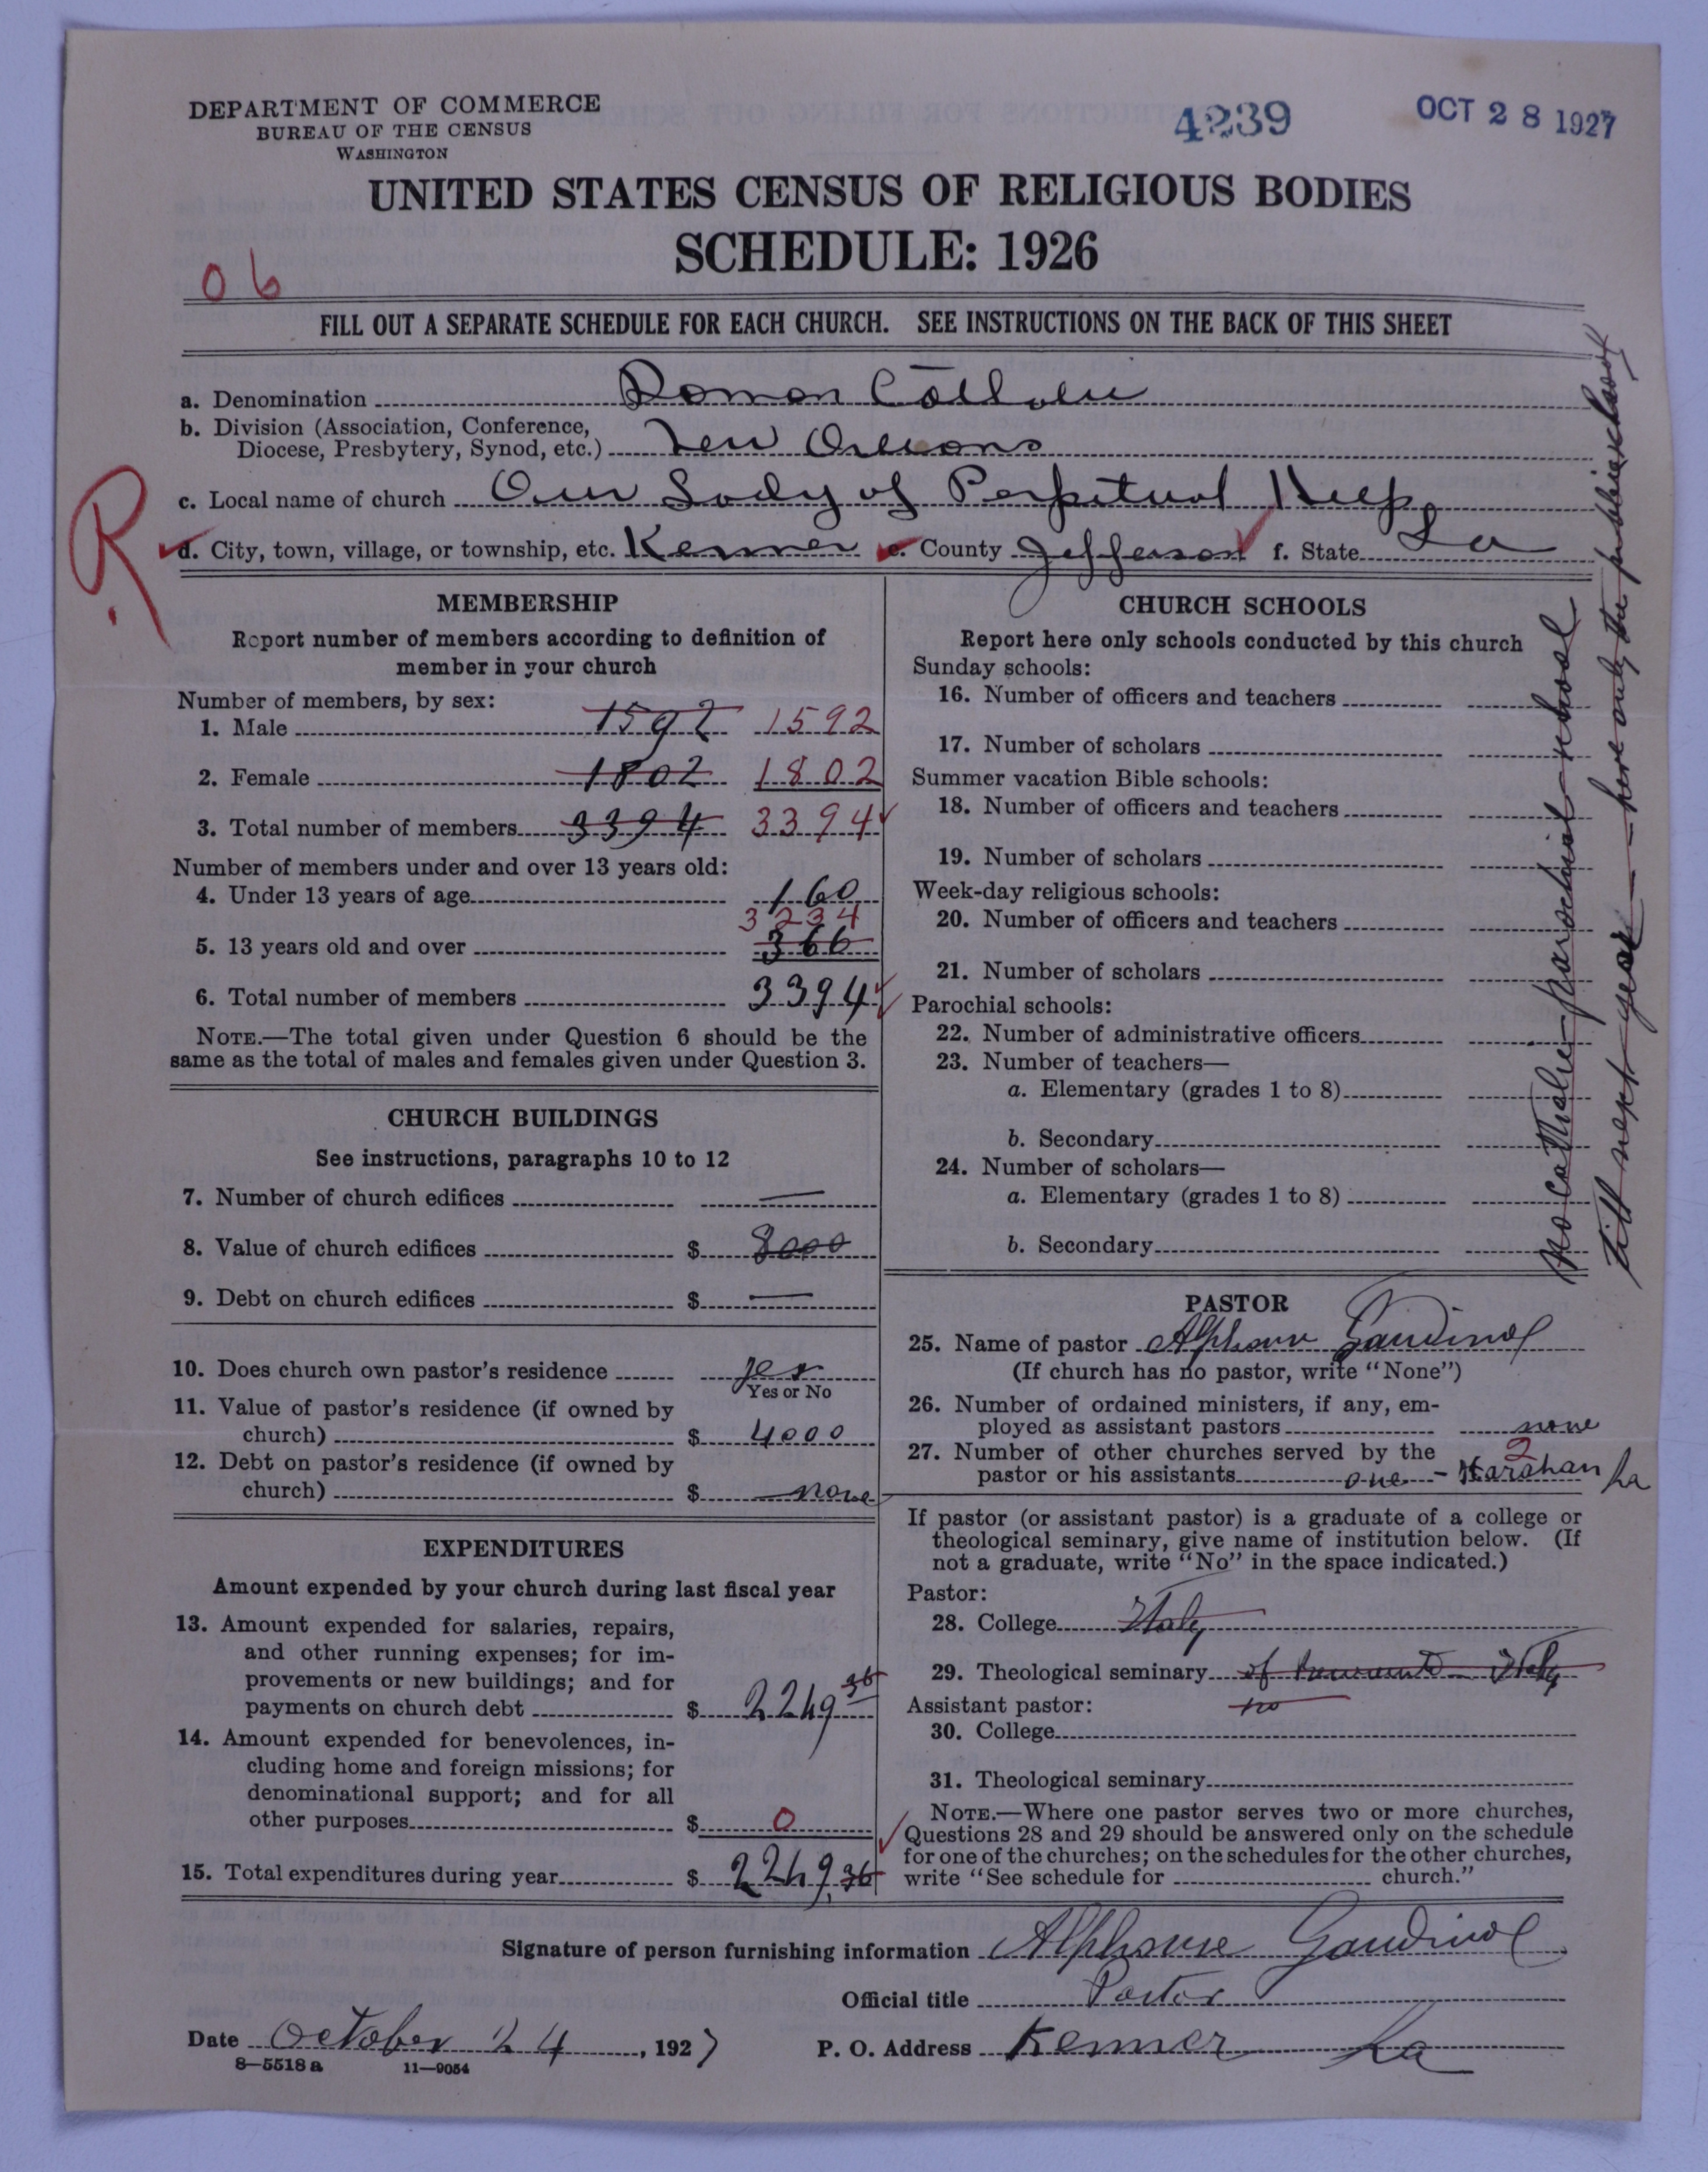 DEPARTMENT OF COMMERCE
BUREAU OF THE CENSUS
WASHINGTON
4239
OCT 28 1927
UNITED STATES CENSUS OF RELIGIOUS BODIES
SCHEDULE: 1926
06
FILL OUT A SEPARATE SCHEDULE FOR EACH CHURCH. SEE INSTRUCTIONS ON THE BACK OF THIS SHEET
a. Denomination Roman Catholic
b. Division (Association, Conference, Diocese, Presbytery, Synod, etc.) New Orleans
c. Local name of church Our Lady of Perpetual Help
R
d. City, town, village, or township, etc. Kenner e. County Jefferson f. State La
MEMBERSHIP
Report number of members according to definition of
member in your church
Number of members, by sex:
1. Male 1592 1592
2. Female 1802 1802
3. Total number of members 3394 3394
Number of members under and over 13 years old:
4. Under 13 years of age 160
3234
5. 13 years old and over 366
6. Total number of members 3394
NOTE.—The total given under Question 6 should be the
same as the total of males and females given under Question 3.
CHURCH BUILDINGS
See instructions, paragraphs 10 to 12
7. Number of church edifices —
8. Value of church edifices $ 8000
9. Debt on church edifices $ —
10. Does church own pastor's residence yes
Yes or No
11. Value of pastor's residence (if owned by
church) $ 4000
12. Debt on pastor's residence (if owned by
church) $ none
EXPENDITURES
Amount expended by your church during last fiscal year
13. Amount expended for salaries, repairs,
and other running expenses; for im-
provements or new buildings; and for
payments on church debt $ 2249 36
14. Amount expended for benevolences, in-
cluding home and foreign missions; for
denominational support; and for all
other purposes $ 0
15. Total expenditures during year $ 2249.36
CHURCH SCHOOLS
Report here only schools conducted by this church
Sunday schools:
16. Number of officers and teachers
17. Number of scholars
Summer vacation Bible schools:
18. Number of officers and teachers
19. Number of scholars
Week-day religious schools:
20. Number of officers and teachers
21. Number of scholars
Parochial schools:
22. Number of administrative officers
23. Number of teachers—
a. Elementary (grades 1 to 8)
b. Secondary
24. Number of scholars—
a. Elementary (grades 1 to 8)
b. Secondary
No Catholic parochial school
till next year — here only the public school
PASTOR
25. Name of pastor Alphonse Gaudinol
(If church has no pastor, write "None")
26. Number of ordained ministers, if any, em-
ployed as assistant pastors none
27. Number of other churches served by the
2
pastor or his assistants one - Harahan La
If pastor (or assistant pastor) is a graduate of a college or
theological seminary, give name of institution below. (If
not a graduate, write "No" in the space indicated.)
Pastor:
28. College Italy
29. Theological seminary of Italy
Assistant pastor: no
30. College
31. Theological seminary
NOTE.—Where one pastor serves two or more churches,
Questions 28 and 29 should be answered only on the schedule
for one of the churches; on the schedules for the other churches,
write "See schedule for church."
Signature of person furnishing information Alphonse Gaudinol
Official title Pastor
Date October 24, 1927 P. O. Address Kenner La
8—5518 a 11—9054